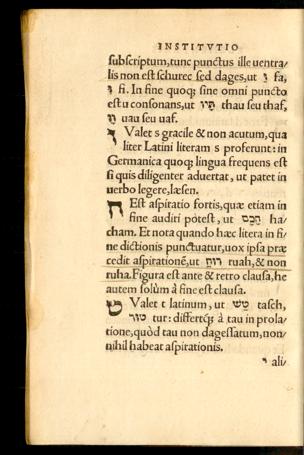 INSTITVTIO
subscriptum, tunc punctus ille uentra/
lis non est schurec sed dages, ut וּ fa,
וּ fi. In fine quoq; sine omni puncto
est u consonans, ut תָּיו thau seu thaf,
וָו uau seu uaf.
ז Valet s gracile & non acutum, qua
liter Latini literam s proferunt: in
Germanica quoq; lingua frequens est
si quis diligenter aduertat, ut patet in
uerbo legere, læsen.
ח Est aspiratio fortis, quæ etiam in
fine audiri potest, ut חָכָם ha/
cham. Et nota quando hæc litera in fi/
ne dictionis punctuatur, uox ipsa præ
cedit aspirationē, ut רוּחַ ruah, & non
ruha. Figura est ante & retro clausa, he
autem solùm à fine est clausa.
ט Valet t latinum, ut טַשׁ tasch,
טוּר tur: differtq; à tau in prola/
tione, quòd tau non dagessatum, non/
nihil habeat aspirationis.
י ali/